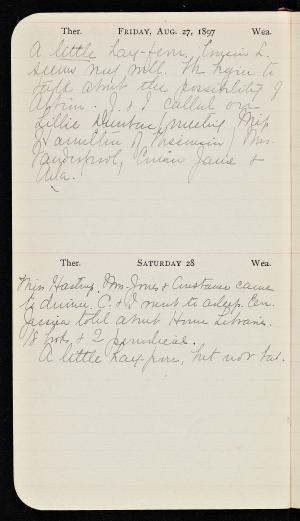 Ther. FRIDAY, AUG. 27, 1897 Wea.
A little hay-fever. Cousin L.
seems very well. We begin to
talk about the possibility of
J. & I called on
Lillie Dunbar, meeting Miss
Hamilton of Wisconsin, Mrs.
Vanderpool, Cousin Jane &
Ada.
Ther. SATURDAY 28 Wea.
Miss Hasting, Mrs. Jones, & Constance came
to dinner, C. & I went to asleep. Cou.
Jessica told about Home Libraries.
18 books & 2 periodicals.
A little hay-fever, but not bad.